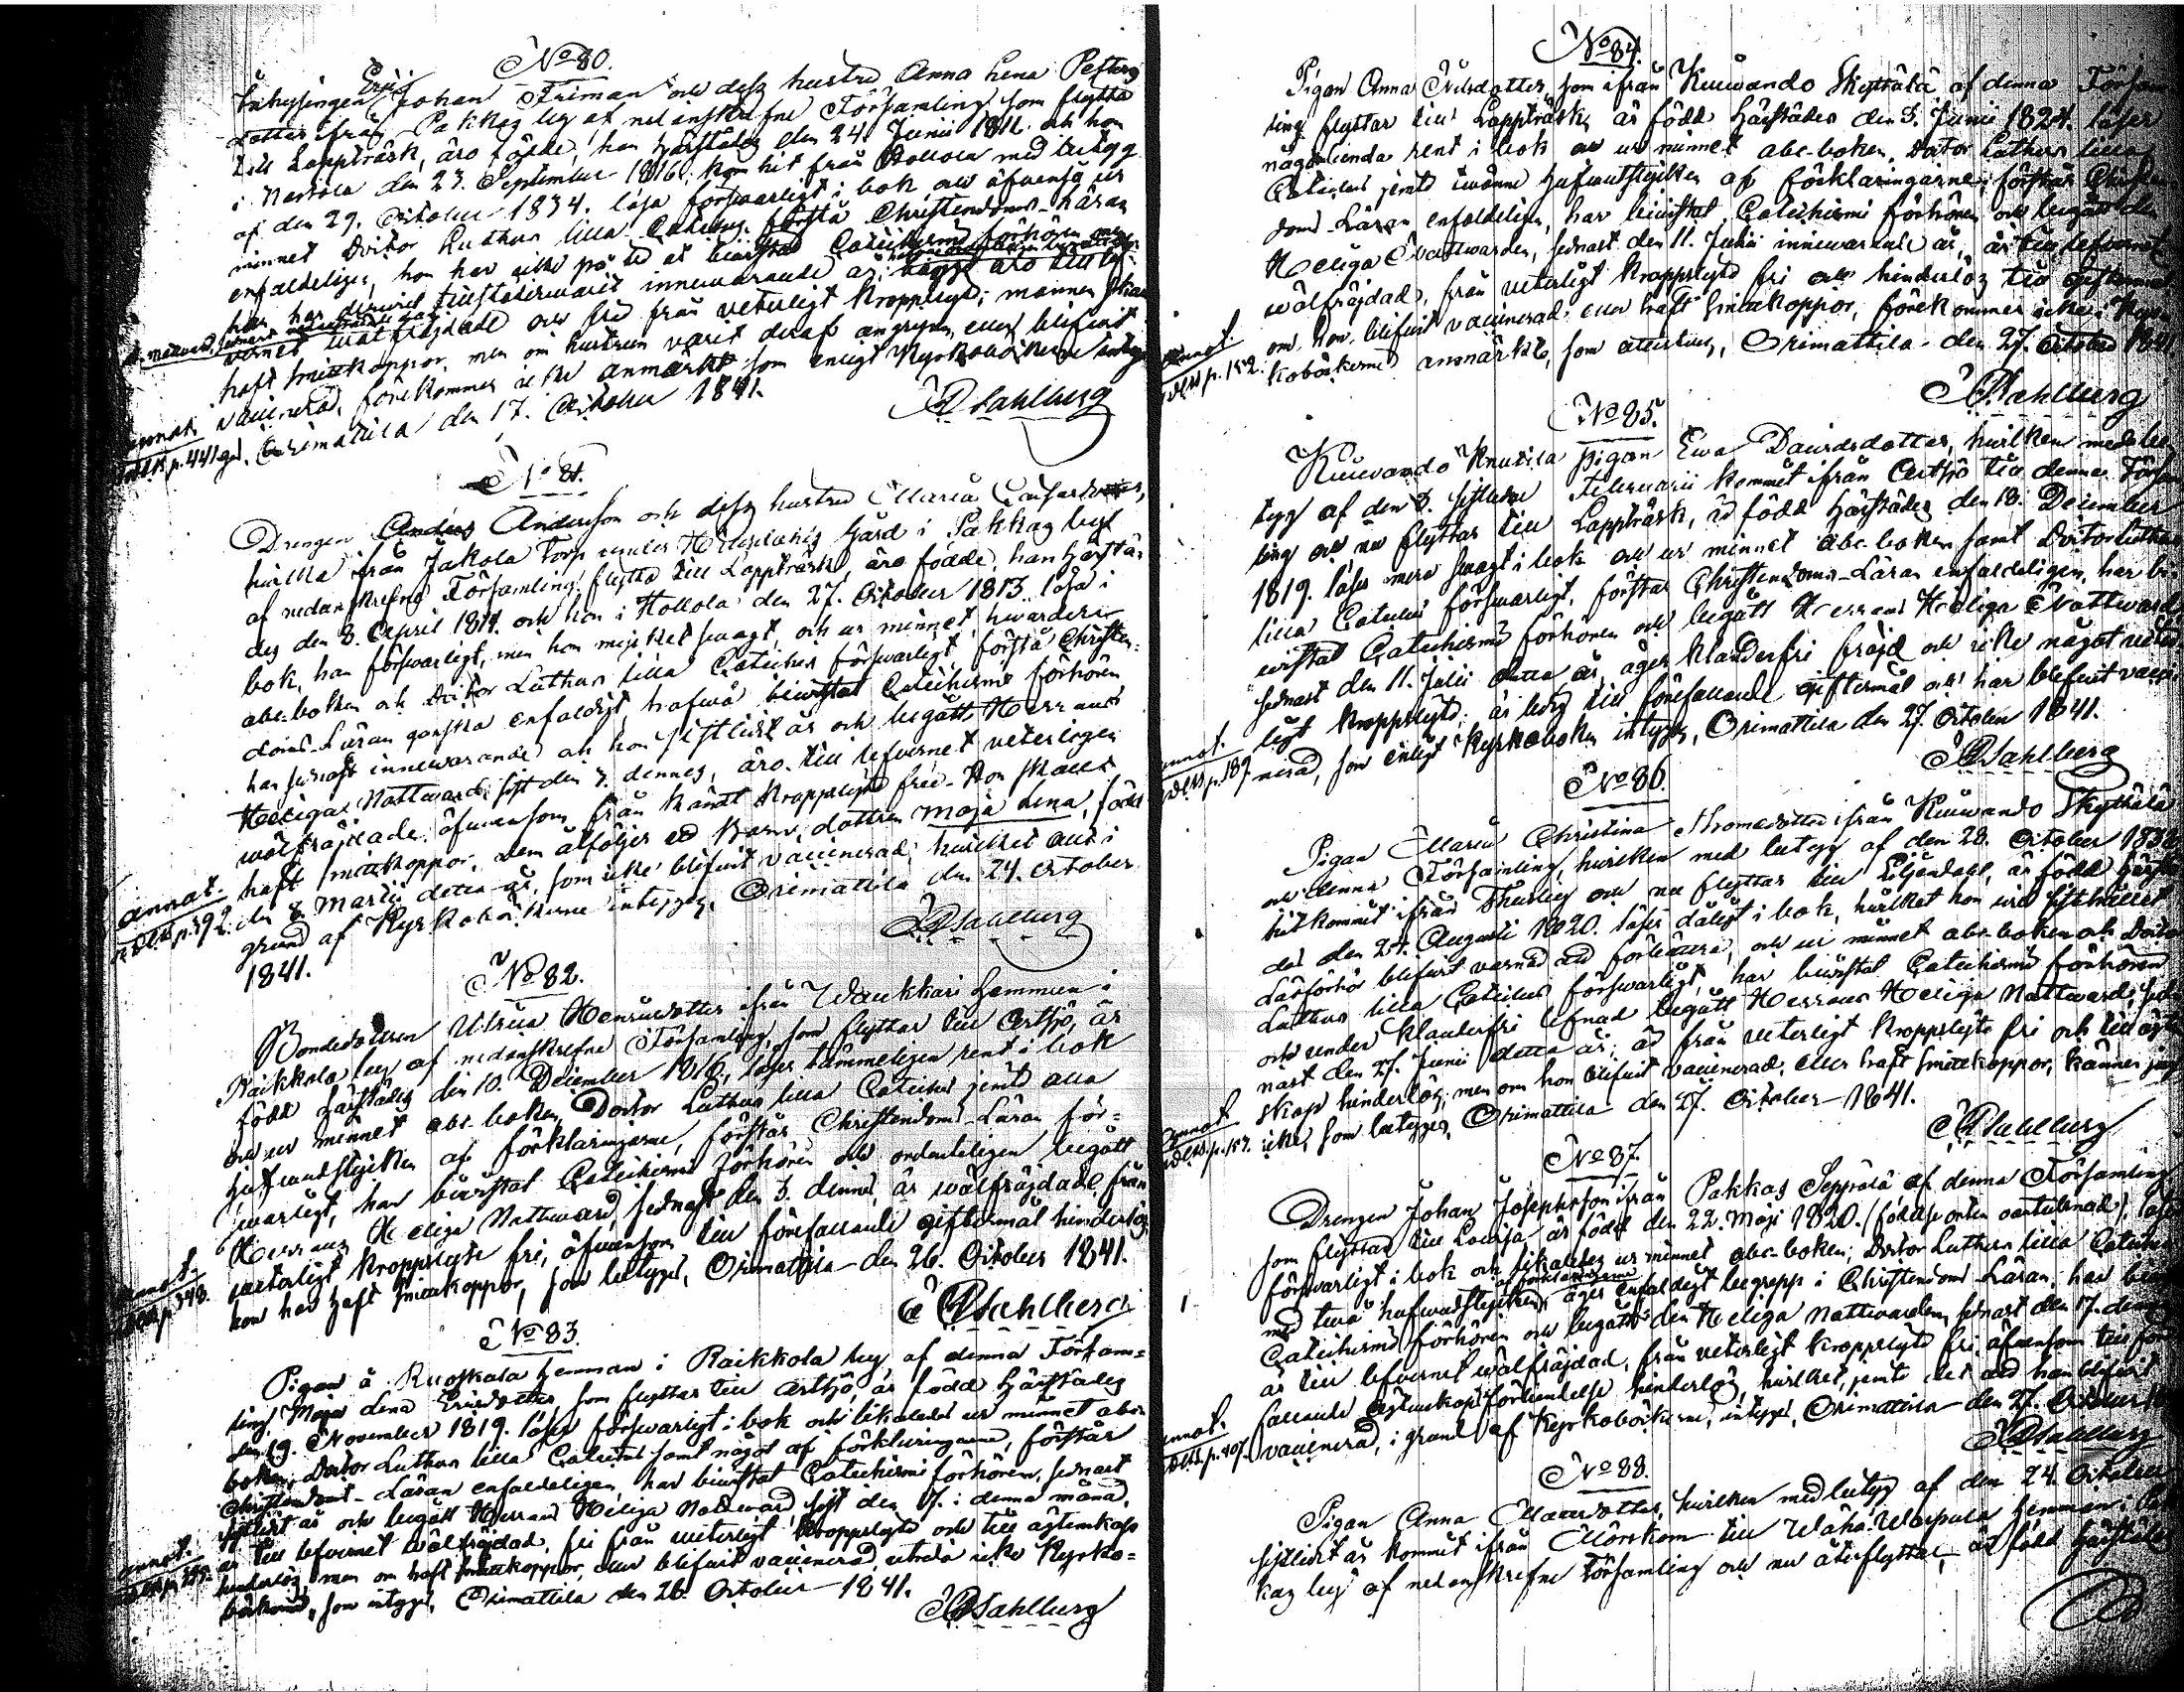 No 80.
Inhysingen Erici Johan Friman och dess hustru Anna Lena Petters
dotter ifrån Pakkas by af nedanskrefne Församling som flytta
till Lappträsk, äro födde, han härstädes den 24. Junii 1811. och hon
i Nastola den 23. September 1816; kom hit från Hollola med betyg
af den 29. October 1834. läsa försvarligt i bok och äfvenså ur
minnet Doctor Luthers lilla Cateches, förstå Christendoms-Läran
enfaldeligen, hon har icke på två år bevistat Catechismi förhören men
han har innevarande år;
välfräjdade och fria från veterligt kroppslyte; mannen skall
haft smittkoppor, men om hustrun varit deraf angripen, eller blifvit
vaccinerad, förekommer icke anmärkt som enligt Kyrkoböckerne intyga
Orimattila den 17. October 1841.
J Dahlberg
annot.
p. 441
No 81.
Drengen Anders Andersson och dess hustru Maria Caisasdotter,
hvilka från Jakola Torp under Heinlahti Gård i Pakkas byal
af nedanskrefne Församling, flytta till Lappträsk, äro födde, han härstä-
des den 8. April 1814. och hon i Hollola den 27. October 1813. läsa i
bok, han försvarligt, men hon mycket svagt, och ur minnet hvardera
abc-boken och Doctor Luthers lilla Cateches försvarligt förstå Christen-
doms-Läran ganska enfaldigt, hafva bevistat Catechismi förhören
han sednast innevarande och hon sistlidit år och begått Herrans
Heliga Nattvard sist den 3 dennes, äro till lefvernet veterligen
välfräjdade äfvensom från kändt kroppslyte frie. Hon skall
haft smittkoppor. Dem åtföljer ett barn, dottren Maja Lena, född
den 8 Martii detta år, som icke blifvit vaccinerad; hvilket allt i
grund af Kyrkoböckerne intygas, Orimattila den 24. October
1841.
J Dahlberg
annot.
p. 592.
No 82.
Bondedottren Ulrica Henricsdotter ifrån Waukkari Hemman i
Raikkola by af nedanskrefne Församling, som flyttar till Artsjö, är
född härstädes den 10. December 1816, läser tämmeligen rent i bok
och ur minnet abc-boken, Doctor Luthers lilla Cateches jemte alla
hufvudstycken af förklaringarne, förstår Christendoms-Läran för-
svarligt, har bevistat Catechismi förhören och ordentligen begått
Herrans Heliga Nattvard, sednast den 3. dennes, är välfräjdade, från
veterligt kroppslyte fri, äfvensom till förefallande giftermål hinderlös
hon har haft smittkoppor, som betygas, Orimattila den 26. October 1841.
J Dahlberg
annot.
p. 343.
No 83.
Pigan å Ruoskala Hemman i Raikkola by af denna Försam-
ling Maja Lena Ericsdotter som flyttar till Artsjö, är född härstädes
den 19. November 1819. läser försvarligt i bok och likaledes ur minnet abc-
boken, Doctor Luthers lilla Cateches samt något af förklaringarne, förstår
Christendoms-Läran enfaldeligen har bevistat Catechismi förhören, sednast
sistlidit år och begått Herrans Heliga Nattvard, sist den 17. i denna månad,
är till lefvernet välfräjdad, fri från veterligt kroppslyte och till ägtenskap
hinderlös, men om haft smittkoppor, eller blifvit vaccinerad, utreda icke Kyrko-
böckerna, som intygas, Orimattila den 26. October 1841.
J Dahlberg
annot.
No 84.
Pigan Anna Nilsdotter, som ifrån Kuivando Skyttälä af denna Försam
ling flyttar till Lappträsk, är född härstädes den 5. Junii 1824. läser
någorlunda rent i bok och ur minnet abc-boken, Doctor Luthers lilla
Cateches jemte tvänne hufvudstycken af förklaringarne; förstår Christen
doms-Läran enfaldeligen, har bevistat Catechismi förhören och begått den
Heliga Nattvarden, sednast den 11. Julii innevarande år, är till lefvernet
wälfräjdad, från veterligt kroppslyte fri och hinderlös till giftermål
om hon blifvit vaccinerad eller haft smittkoppor, förekommer icke i Kyr
koböckerne anmärkt, som attesteras, Orimattila den 27. October 1841
J Dahlberg
annot.
p. 152.
No 85.
Kuivando Knutila pigan Ewa Davidsdotter, hvilken med be
tyg af den 3. sistledne Februarii kommit ifrån Artsjö till denna Församl
ling och nu flyttar till Lappträsk, är född härstädes den 18. December
1819. läser mera svagt i bok och ur minnet abc-boken samt Doctor Luthers
lilla Cateches försvarligt, förstår Christendoms-Läran enfaldeligen, har be
vistat Catechismi förhören och begått Herrans Heliga Nattvard
sednast den 11. Julii detta år, äger klanderfri fräjd och icke något veter
ligt kroppslyte, är ledig till förefallande giftermål och har blifvit vacci
nerad, som enligt Kyrkoboken intygas, Orimattila den 27. October 1841.
J Dahlberg
annot.
p. 187
No 86.
Pigan Maria Christina Thomasdotter ifrån Kuivando Skyttälä
och denna Församling, hvilken med betyg af den 28. October 1838
hitkommit ifrån Thusby och nu flyttar till Liljendahl, är född härstä
des den 24. Augusti 1820. läser dåligt i bok, hvilket hon vid sisthållet
Läsförhör blifvit varnad att förbättra, och ur minnet abc-boken och Doctor
Luthers lilla Cateches försvarligt, har bevistat Catechismi förhören
och under klanderfri lefnad begått Herrans Heliga Nattvard, sed
nast den 27. Junii detta år; är från veterligt kroppslyte fri och till ägten
skap hinderlös; men om hon blifvit vaccinerad, eller haft smittkoppor, känner jag
icke, som betygas, Orimattila den 27. October 1841.
J Dahlberg
annot.
p. 157.
No 87.
Drengen Johan Josephsson ifrån Pakkas Seppälä af denna Församling
som flyttar till Lovisa är född den 22. Maji 1820. (födelse orten oantecknad), läser
försvarligt i bok och likaledes ur minnet abc-boken; Doctor Luthers lilla Cateches
med två hufvudstycken af förklaringarne, äger enfaldigt begrepp i Christendoms-Läran, har bev
Catechismi förhören och begått den Heliga Nattvarden, sednast den 17. dennes
är till lefvernet välfräjdad, från veterligt kroppslyte fri, äfvensom till före
fallande ägtenskaps förbindelse hinderlös, hvilket, jemte det att han blifvit
vaccinerad, i grund af Kyrkoböckerne, intygas, Orimattila den 27. October 18
J Dahlberg
annot.
p. 407.
No 88.
Pigan Anna Mattsdotter, hvilken med betyg af den 24. October
sistlidit år kommit ifrån Mörskom till Wähä-Warpula Hemman i Pak
kas by af nedanskrefne Församling och nu återflyttar, är född härstädes